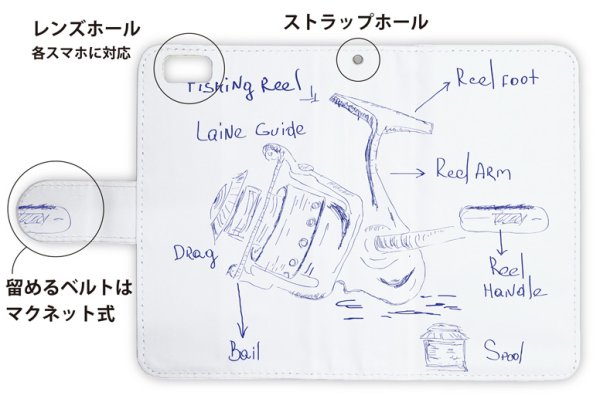 レンズホール
各スマホに対応
ストラップホール
Fishing Reel
Reel Foot
Laine Guide
Reel Arm
Drag
Reel
Handle
Bail
Spool
留めるベルトは
マクネット式